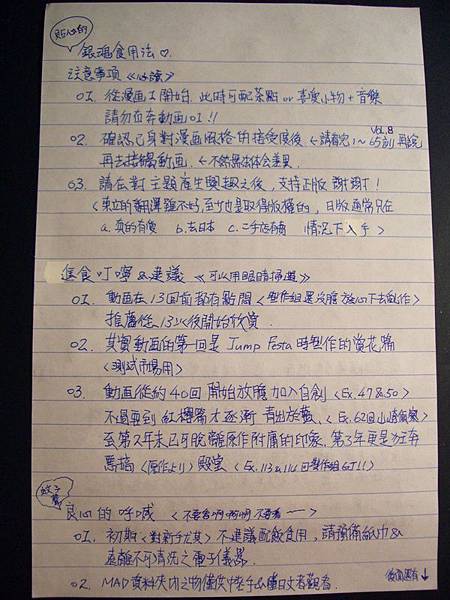 貼心的
銀魂食用法♡.
注意事項《必讀》
01. 從漫画1開始. 此時可配茶點 or 喜愛小物+音樂
請勿直奔動画01!!
02. 確認己身對漫画風格的接受度後 ←請看完1~65則 再說
VOL.8
再去接觸動画. ←不然
03. 請在對主題產生興趣之後, 支持正版 謝謝!
<東立的翻譯雖不好,至少也是取得版權的, 日版通常只在
a. 真的有愛 b. 去日本 c. 二手店有賣 情況下入手>
進食叮嚀&建議 《可以用眼睛掃過》
01. 動画在13回前都有點悶<製作組還沒膽放心下去創作>
推薦從13以後開始欣賞.
02. 其實動画的第一回是 Jump Festa 時製作的賞花篇
<測試市場用>
03. 動画從約40回開始放膽加入自創 <Ex. 47 & 50>
不過要到紅櫻篇才逐漸青出於藍、<Ex. 62回山崎偵察>
至第2年末已可脫離原作附庸的印象. 第3年更是狂奔
<原作より> 殿堂 <Ex. 113 & 114回製作組GJ!!>
良心的呼喊 <不要啊啊啊不要看 一>
01. 初期<對新手尤其>不建議配飲食用, 請預備紙巾&
遠離不可清洗之電子儀器.
02. MAD資料失功之物僅供中手&懂日文者觀看.
後面還有↓